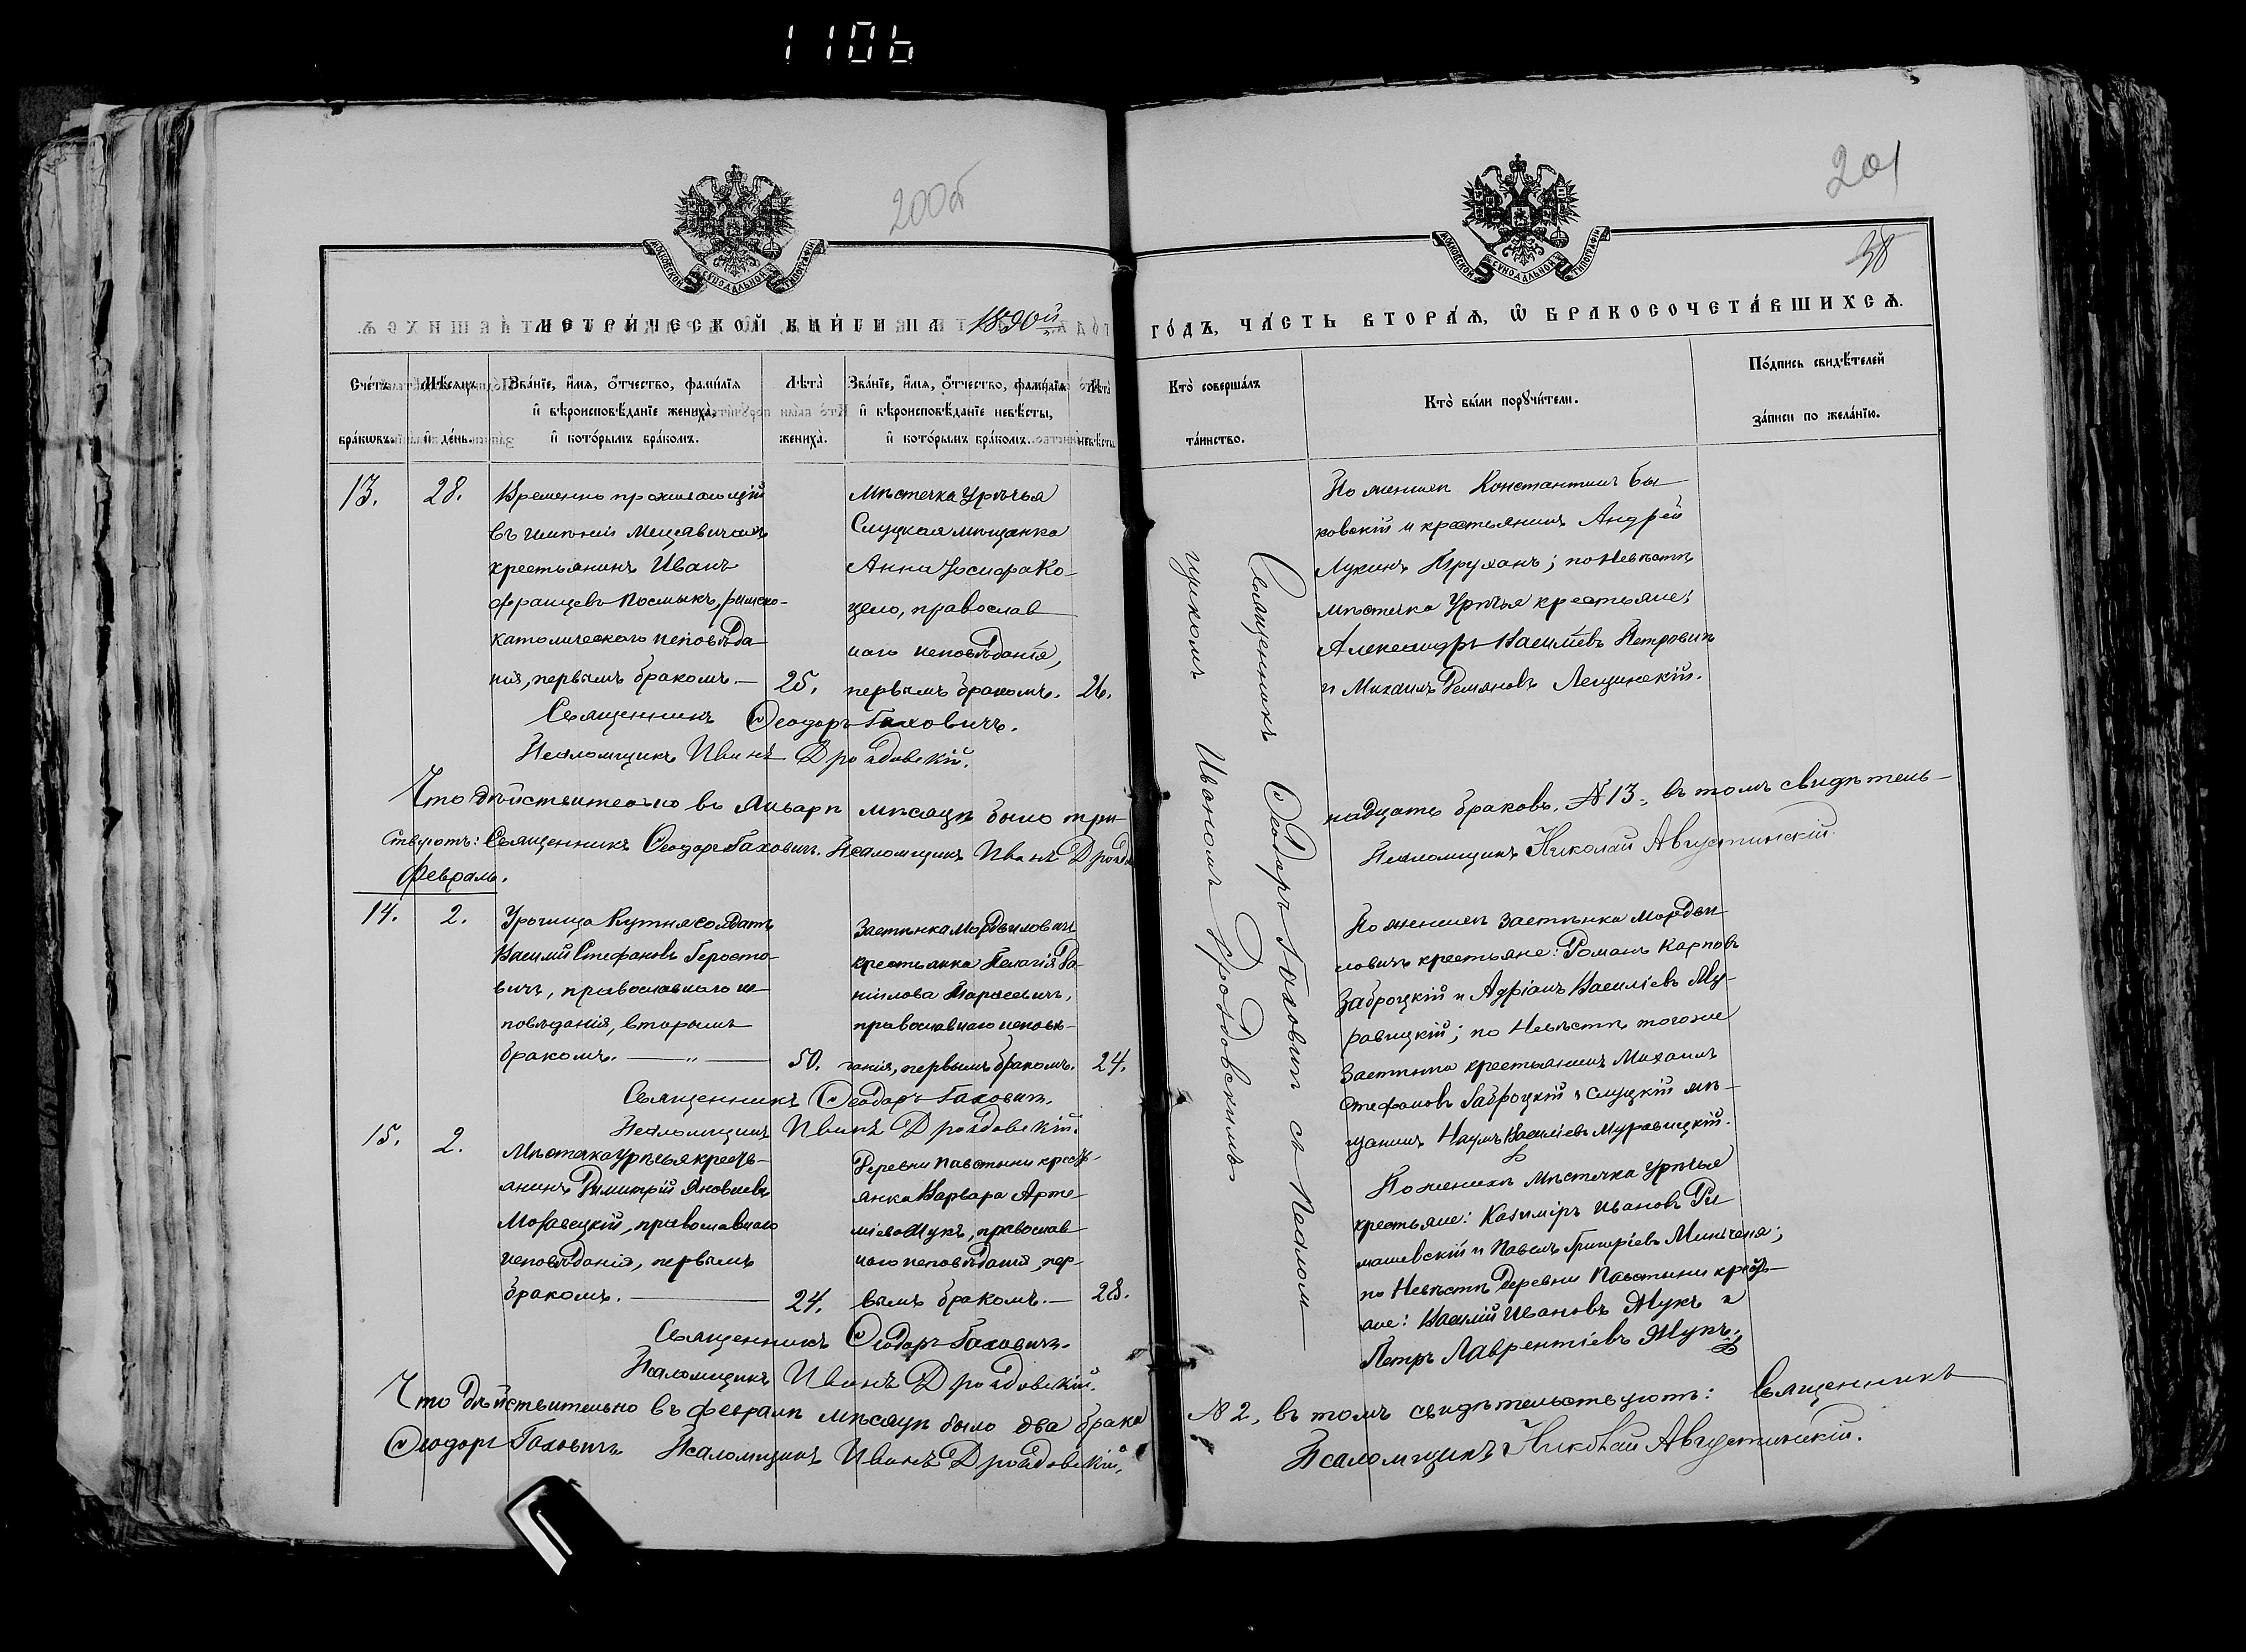 1106
200об
201
38
МОСКОВСКОЙ СѴНОДАЛЬНОЙ ТИПОГРАФІИ
МОСКОВСКОЙ СѴНОДАЛЬНОЙ ТИПОГРАФІИ
МЕТРИ́ЧЕСКОЙ КНИ́ГИ НА 1890й
ГО́ДЪ, ЧА́СТЬ ВТОРА́Ѧ, Ѡ҆ БРАКОСОЧЕТА́ВШИХСѦ.
Сче́тъ бра́кѡвъ.
Мѣ́сѧцъ и҆ де́нь.
Зва́нїе, и҆́мѧ, ѻ҆́тчество, фами́лїѧ
и҆ вѣроисповѣ́данїе жениха̀,
и҆ кото́рымъ бра́комъ.
Лѣта̀
жениха̀.
Зва́нїе, и҆́мѧ, ѻ҆́тчество, фами́лїѧ
и҆ вѣроисповѣ́данїе невѣ́сты,
и҆ кото́рымъ бра́комъ.
Лѣта̀
невѣ́сты.
Кто̀ соверша́лъ
та́инство.
Кто̀ бы́ли порꙋчи́тели.
По́дпись свидѣ́телей
за́писи по жела́нїю.
13.
28.
Временно проживающій
въ имѣніи
крестьянинъ Иванъ
Францевъ Посмыкъ, римско-
католическаго исповѣда
нія, первымъ бракомъ.—
25.
Мѣстечка Урѣчья
Слуцкая мѣщанка
Анна Іосифа Ко-
цело, православ
наго исповѣданія,
первымъ бракомъ.
26.
По женихѣ Константинъ Бы
ковскій и крестьянинъ Андрей
Лукинъ Труханъ; по Невѣстѣ
мѣстечка Урѣчья крестьяне:
Александръ Васильевъ Петровичъ
и Михаилъ Демяновъ Лещинскій.
Священникъ Ѳеодоръ Гахович.
Псаломщикъ Иванъ Дроздовскій.
Что дѣйствительно въ Январѣ мѣсяцѣ было три-
надцать браковъ, № 13, въ томъ свидѣтель-
ствуютъ: Священникъ Ѳеодоръ Гахович. Псаломщикъ Иванъ
Псаломщикъ Николай Августинскій.
Священникъ Ѳеодоръ Гаховичъ съ Псалом—
щикомъ Иваномъ Дроздовскимъ
Февраль.
14.
2.
Урочища Кутня солдатъ
Василій Стефановъ
православнаго ис
повѣданія, вторымъ
бракомъ. — „ —
50.
Застѣнка Мордвиловичъ
крестьянка Пелагія Да-
ніилова Тарасевичъ,
православнаго исповѣ-
данія, первымъ бракомъ.
24.
По женихѣ застѣнка Мордви
ловичъ крестьяне: Романъ Карповъ
Заброцкій и Адріанъ Василіевъ Му-
равицкій; по Невѣстѣ тогоже
Застѣнка крестьянинъ Михаилъ
Стефановъ Заброцкій и Слуцкій мѣ-
щанинъ Наумъ Василіевъ Муравицкій.
Священникъ Ѳеодоръ Гаховичъ.
Псаломщикъ Иванъ Дроздовскій.
15.
2.
Мѣстечка Урѣчья кресть-
янинъ Димитрій Яковлевъ
православнаго
исповѣданія, первымъ
бракомъ. —
24.
Деревни Павстыни кресть-
янка Варвара Арте-
міева Жукъ, православ
наго исповѣданія, пер-
вымъ бракомъ. —
23.
По женихѣ Мѣстечка Урѣчья
крестьяне: Казиміръ Ивановъ Ри
машевскій и Павелъ Григоріевъ
по Невѣстѣ Деревни Павстыни кресть—
яне: Василій Ивановъ Жукъ и
Петръ Лаврентіевъ Жукъ.
Священникъ Ѳеодоръ Гаховичъ.
Псаломщикъ Иванъ Дроздовскій.
Что дѣйствительно въ февралѣ мѣсяцѣ было два брака
№ 2, въ томъ свидѣтельствуютъ: Священникъ
Ѳеодоръ Гаховичъ Псаломщикъ Иванъ Дроздовскій,
Псаломщикъ Николай Августинскій.